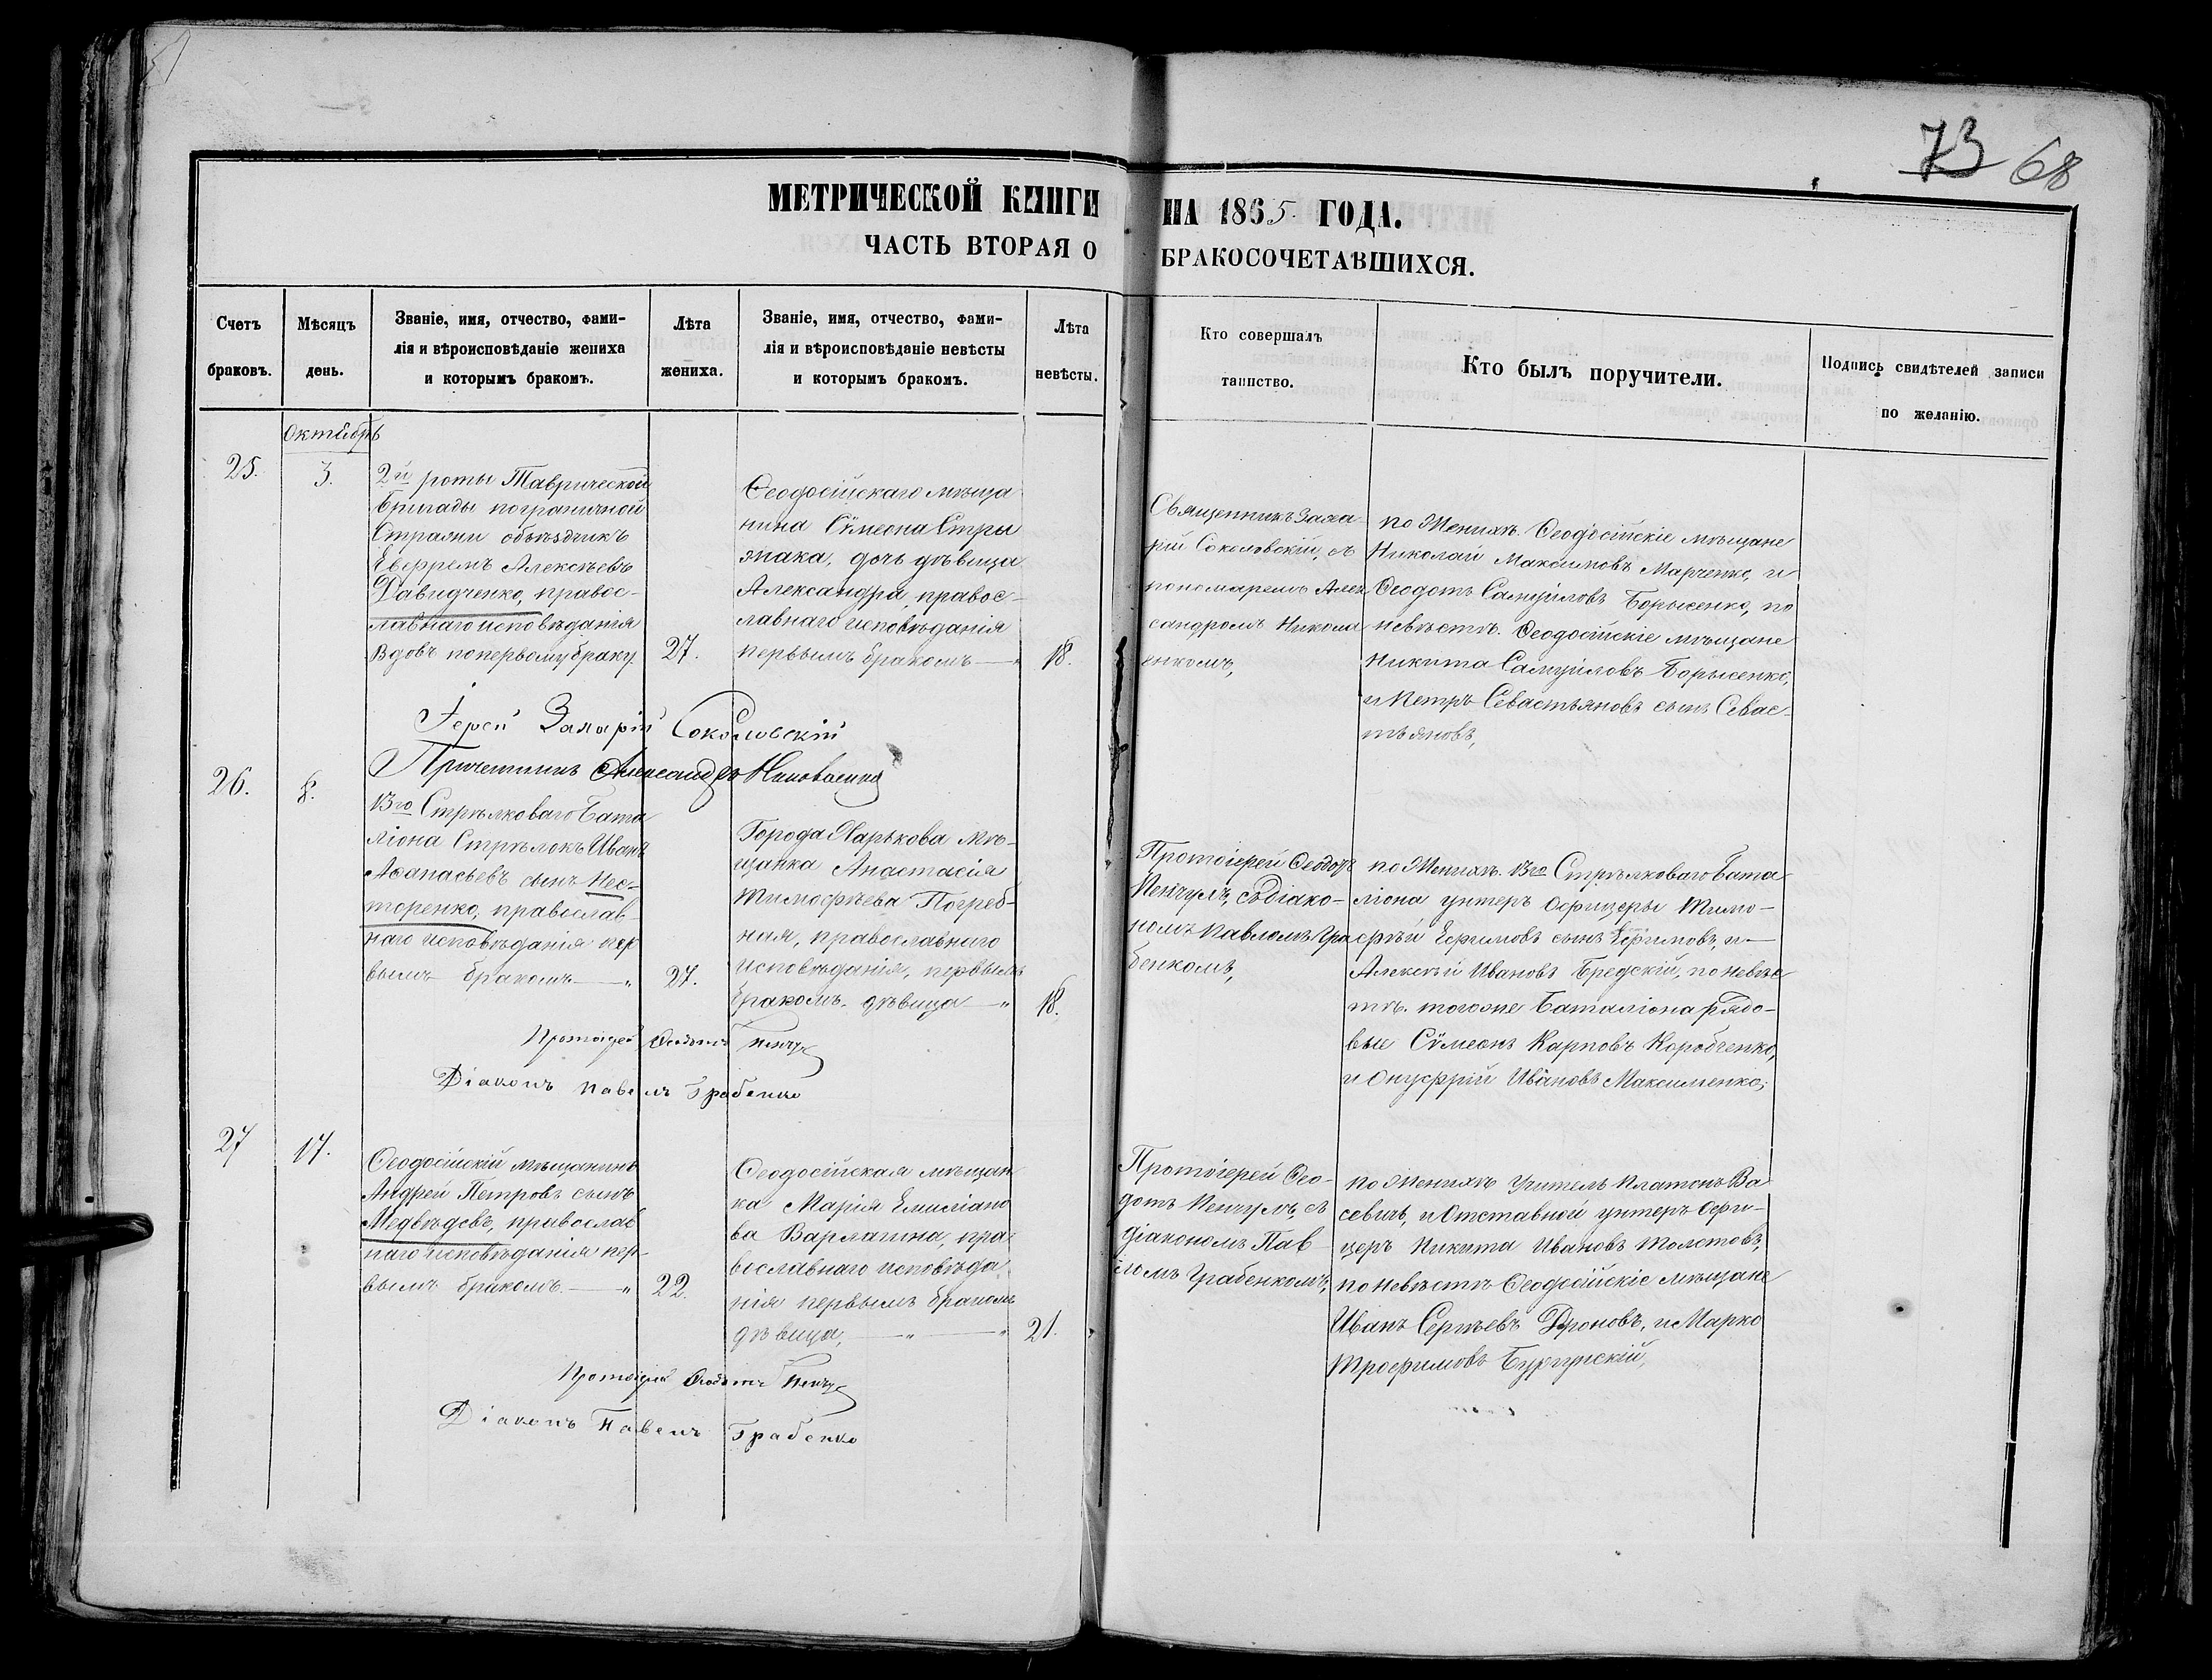 73 68
МЕТРИЧЕСКОЙ КНИГИ НА 1865 ГОДА.
ЧАСТЬ ВТОРАЯ О БРАКОСОЧЕТАВШИХСЯ.
Счетъ
браковъ.
Мѣсяцъ
день.
Званіе, имя, отчество, фами-
лія и вѣроисповѣданіе жениха
и которымъ бракомъ.
Лѣта
жениха.
Званіе, имя, отчество, фами-
лія и вѣроисповѣданіе невѣсты
и которымъ бракомъ.
Лѣта
невѣсты.
Кто совершалъ
таинство.
Кто былъ поручители.
Подпись свидѣтелей записи
по желанію.
Октябрь
25.
3.
2й роты Таврической
Бригады пограничной
Стражи объѣздчикъ
Евфремъ Алексѣевъ
Давидченко, правос-
лавнаго исповѣданія
Вдовъ по первому браку.
27.
Ѳеодосійскаго мѣща
нина Сѵмеона Стри
жака, дочь дѣвица
Александра, правос-
лавнаго исповѣданія
первымъ бракомъ — "
18.
Священникъ Заха
рій Соколовскій, съ
пономаремъ Алек
сандромъ Никола
енкомъ,
по Женихѣ. Ѳеодосійскіе мѣщане
Николай Максимовъ Марченко, и
Ѳеодотъ Самуиловъ Борысенко, по
невѣстѣ. Ѳеодосійскіе мѣщане
Никита Самуиловъ Борысенко,
и Петръ Севастьяновъ сынъ Севас-
тьяновъ,
Іерей Захарій Соколовскій
Причетникъ Александръ Николаенко
26.
8.
13го Стрѣлковаго Бата
ліона Стрѣлокъ Иванъ
Аѳанасьевъ сынъ Нес-
теренко, православ-
наго исповѣданія пер
вымъ бракомъ — "
27.
Города Харькова мѣ-
щанка Анастасія
Тимофѣева Погреб-
ная, православнаго
исповѣданія, первымъ
бракомъ. дѣвица — "
18.
Протоіерей Ѳеодотъ
Пенчулъ, съ діако-
номъ Павломъ Гра
бенкомъ,
по Женихѣ. 13го Стрѣлковаго Бата
ліона унтеръ Офицеры Тимо-
фѣй Ефимовъ сынъ Ефимовъ, и —
Алексѣй Ивановъ Бредскій, по невѣс
тѣ. тогоже Баталіона рядо-
вые Сѵмеонъ Карповъ Коробченко,
и Онуфрій Ивановъ Максименко;
Протоіерей Ѳеодотъ Пенчулъ
Діаконъ Павелъ Грабенко
27
17.
Ѳеодосійскій мѣщанинъ
Андрей Петровъ сынъ
Медвѣдевъ, православ
наго исповѣданія пер-
вымъ бракомъ. — "
22.
Ѳеодосійская мѣщан
ка Марія Емиліано
ва Варлагина, пра
вославнаго исповѣда
нія первымъ бракомъ
дѣвица, — " — "
21.
Протоіерей Ѳео-
дотъ Пенчулъ, съ
діакономъ Пав
ломъ Грабенкомъ,
по Женихѣ Учитель Платонъ Ва
севичъ, и Отставной унтеръ-Офи-
церъ Никита Ивановъ Молотовъ,
по невѣстѣ Ѳеодосійскіе мѣщане
Иванъ Сергѣевъ Дроновъ, и Марко
Трофимовъ Бургунскій,
Протоіерей Ѳеодотъ Пенчулъ
Діаконъ Павелъ Грабенко